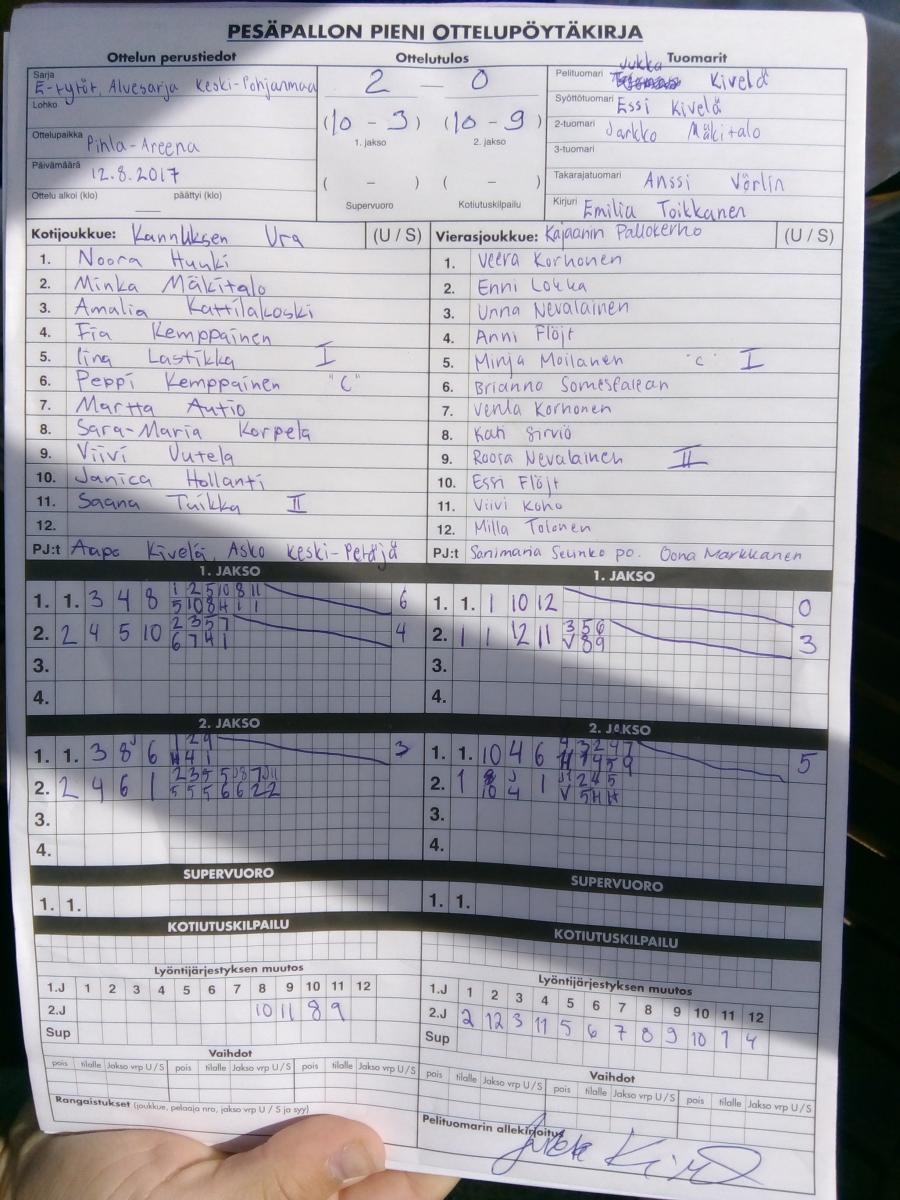 PESÄPALLON PIENI OTTELUPÖYTÄKIRJA
Ottelun perustiedot
Sarja
E-tytöt, Aluesarja Keski-Pohjanmaa
Lohko
Ottelupaikka
Pihla-Areena
Päivämäärä
12.8.2017
Ottelu alkoi (klo) päättyi (klo)
Ottelutulos
2 — 0
(10 - 3) (10 - 9)
1. jakso 2. jakso
( - ) ( - )
Supervuoro Kotiutuskilpailu
Tuomarit
Jukka
Pelituomari Kivelä
Syöttötuomari Essi Kivelä
2-tuomari Jarkko Mäkitalo
3-tuomari
Takarajatuomari Anssi Vörlin
Kirjuri Emilia Toikkanen
Kotijoukkue: Kannuksen Ura (U / S)
1. Noora Huuki
2. Minka Mäkitalo
3. Amalia Kattilakoski
4. Fia Kemppainen
5. Iina Lastikka I
6. Peppi Kemppainen "C"
7. Martta Autio
8. Sara-Maria Korpela
9. Viivi Uutela
10. Janica Hollanti
11. Saana Tuikka II
12.
PJ:t Aapo Kivelä, Asko Keski-Petäjä
Vierasjoukkue: Kajaanin Pallokerho (U / S)
1. Veera Korhonen
2. Enni Lokka
3. Unna Nevalainen
4. Anni Flöjt
5. Minja Moilanen "C" I
6. Brianna
7. Venla Korhonen
8. Kati Sirviö
9. Roosa Nevalainen II
10. Essi Flöjt
11. Viivi Koho
12. Milla Tolonen
PJ:t Sanimaria po. Oona Markkanen
1. JAKSO
1. 1. 3 4 8 1 2 5 10 8 11 6
5 10 8 4 1 1
2. 2 4 5 10 2 3 5 7 4
6 7 4 1
3.
4.
1. JAKSO
1. 1. 1 10 12 0
2. 1 1 12 11 3 5 6 3
V 8 9
3.
4.
2. JAKSO
1. 1. 3 8 6 1 2 9 3
4 1
2. 2 4 6 1 2 3 5 5
5 5 5 6 6 2 2
3.
4.
2. JAKSO
1. 1. 10 4 6 3 2 4 7 5
2. 1 1 2 4 5
10 4 V 5 H H
3.
4.
SUPERVUORO
1. 1.
SUPERVUORO
1. 1.
KOTIUTUSKILPAILU
KOTIUTUSKILPAILU
Lyöntijärjestyksen muutos
1.J 1 2 3 4 5 6 7 8 9 10 11 12
2.J 10 11 8 9
Sup
Vaihdot
pois tilalle Jakso vrp U / S pois tilalle Jakso vrp U / S pois tilalle Jakso vrp U / S
Rangaistukset (joukkue, pelaaja nro, jakso vrp U / S ja syy)
Lyöntijärjestyksen muutos
1.J 1 2 3 4 5 6 7 8 9 10 11 12
2.J 2 12 3 11 5 6 7 8 9 10 1 4
Sup
Vaihdot
pois tilalle Jakso vrp U / S pois tilalle Jakso vrp U / S pois tilalle Jakso vrp U / S
Pelituomarin allekirjoitus